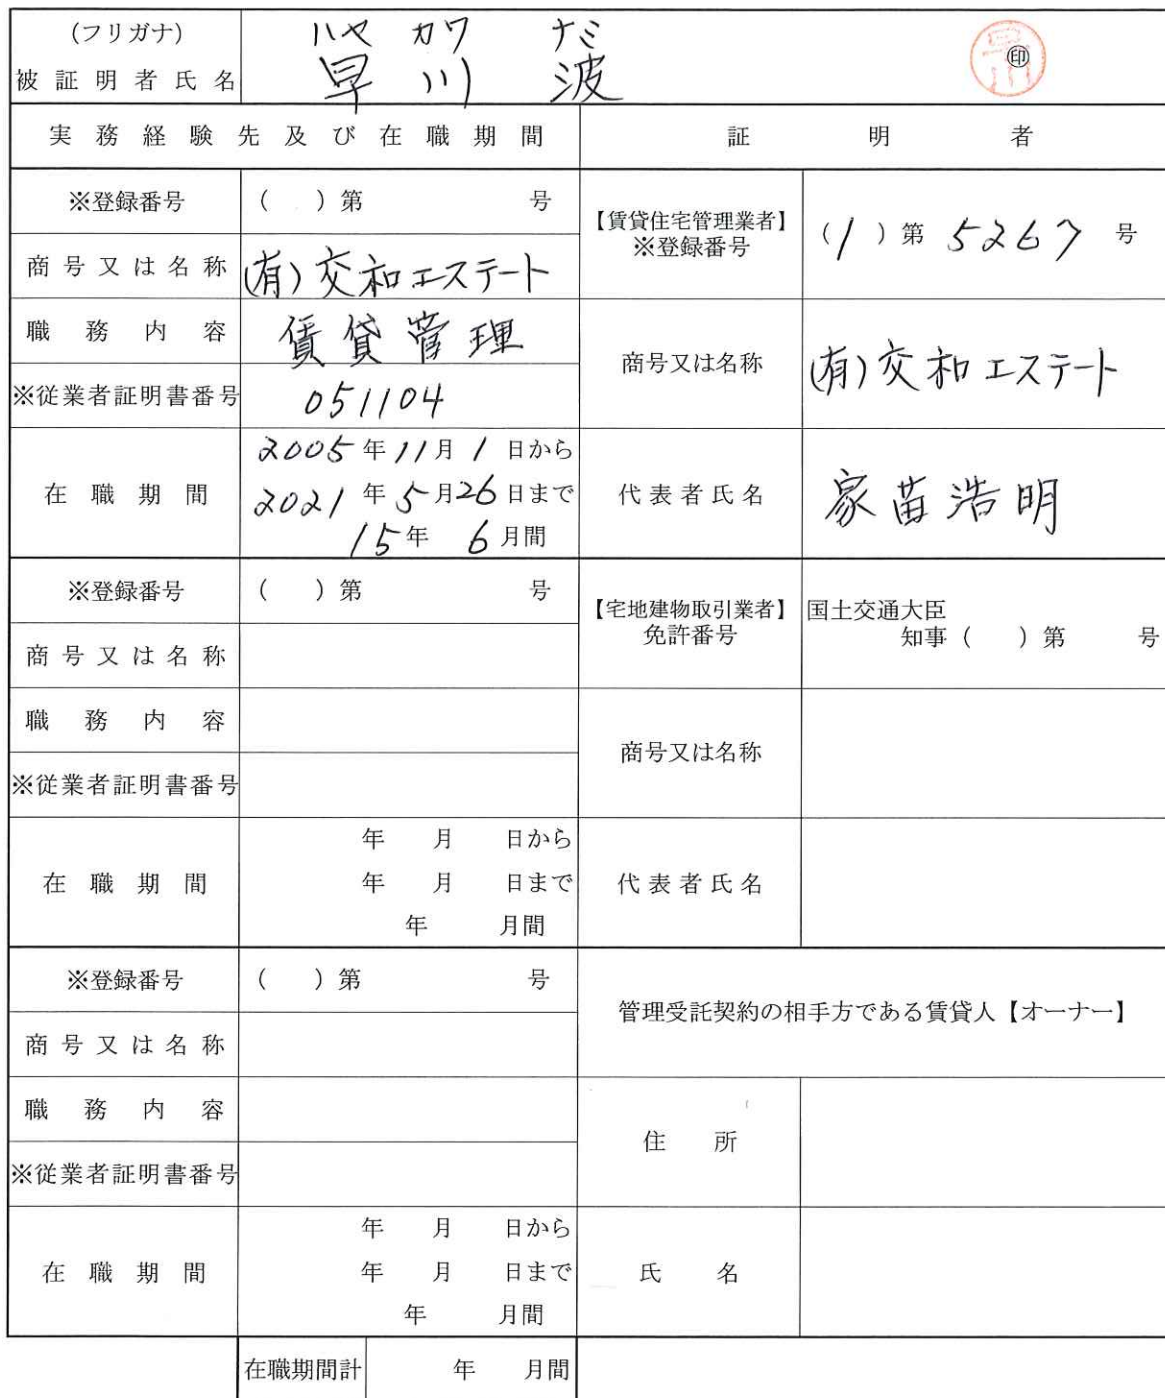 (フリガナ) ハヤ カワ ナミ
被証明者氏名 早川 波 ㊞ 早川
実務経験先及び在職期間 証明者
※登録番号 ( )第 号
【賃貸住宅管理業者】
※登録番号 (1)第 5267 号
商号又は名称 (有)交和エステート
職務内容 賃貸管理
商号又は名称 (有)交和エステート
※従業者証明書番号 051104
在職期間 2005年11月1日から
2021年5月26日まで
15年 6月間
代表者氏名 家苗浩明
※登録番号 ( )第 号
【宅地建物取引業者】
免許番号
国土交通大臣
知事( )第 号
商号又は名称
職務内容
商号又は名称
※従業者証明書番号
在職期間 年 月 日から
年 月 日まで
年 月間
代表者氏名
※登録番号 ( )第 号
管理受託契約の相手方である賃貸人【オーナー】
商号又は名称
職務内容
住所
※従業者証明書番号
在職期間 年 月 日から
年 月 日まで
年 月間
氏名
在職期間計 年 月間